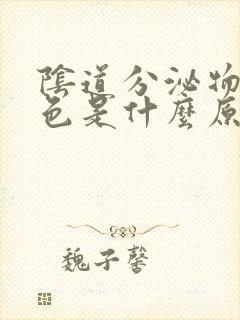 陰道分泌物
色是什麼原
魏子馨